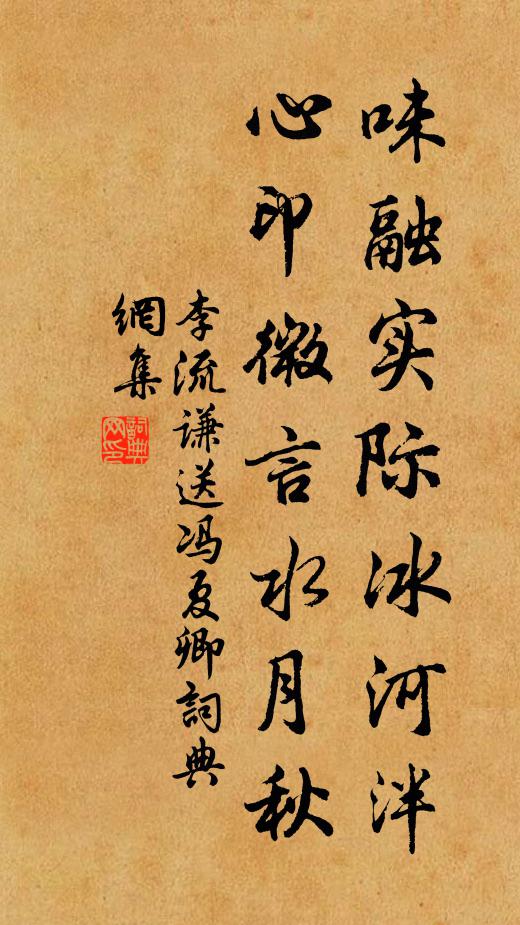 味融实际冰河泮
心印微言水月秋
李流谦送冯夏卿詞典
網集
詞典
网印